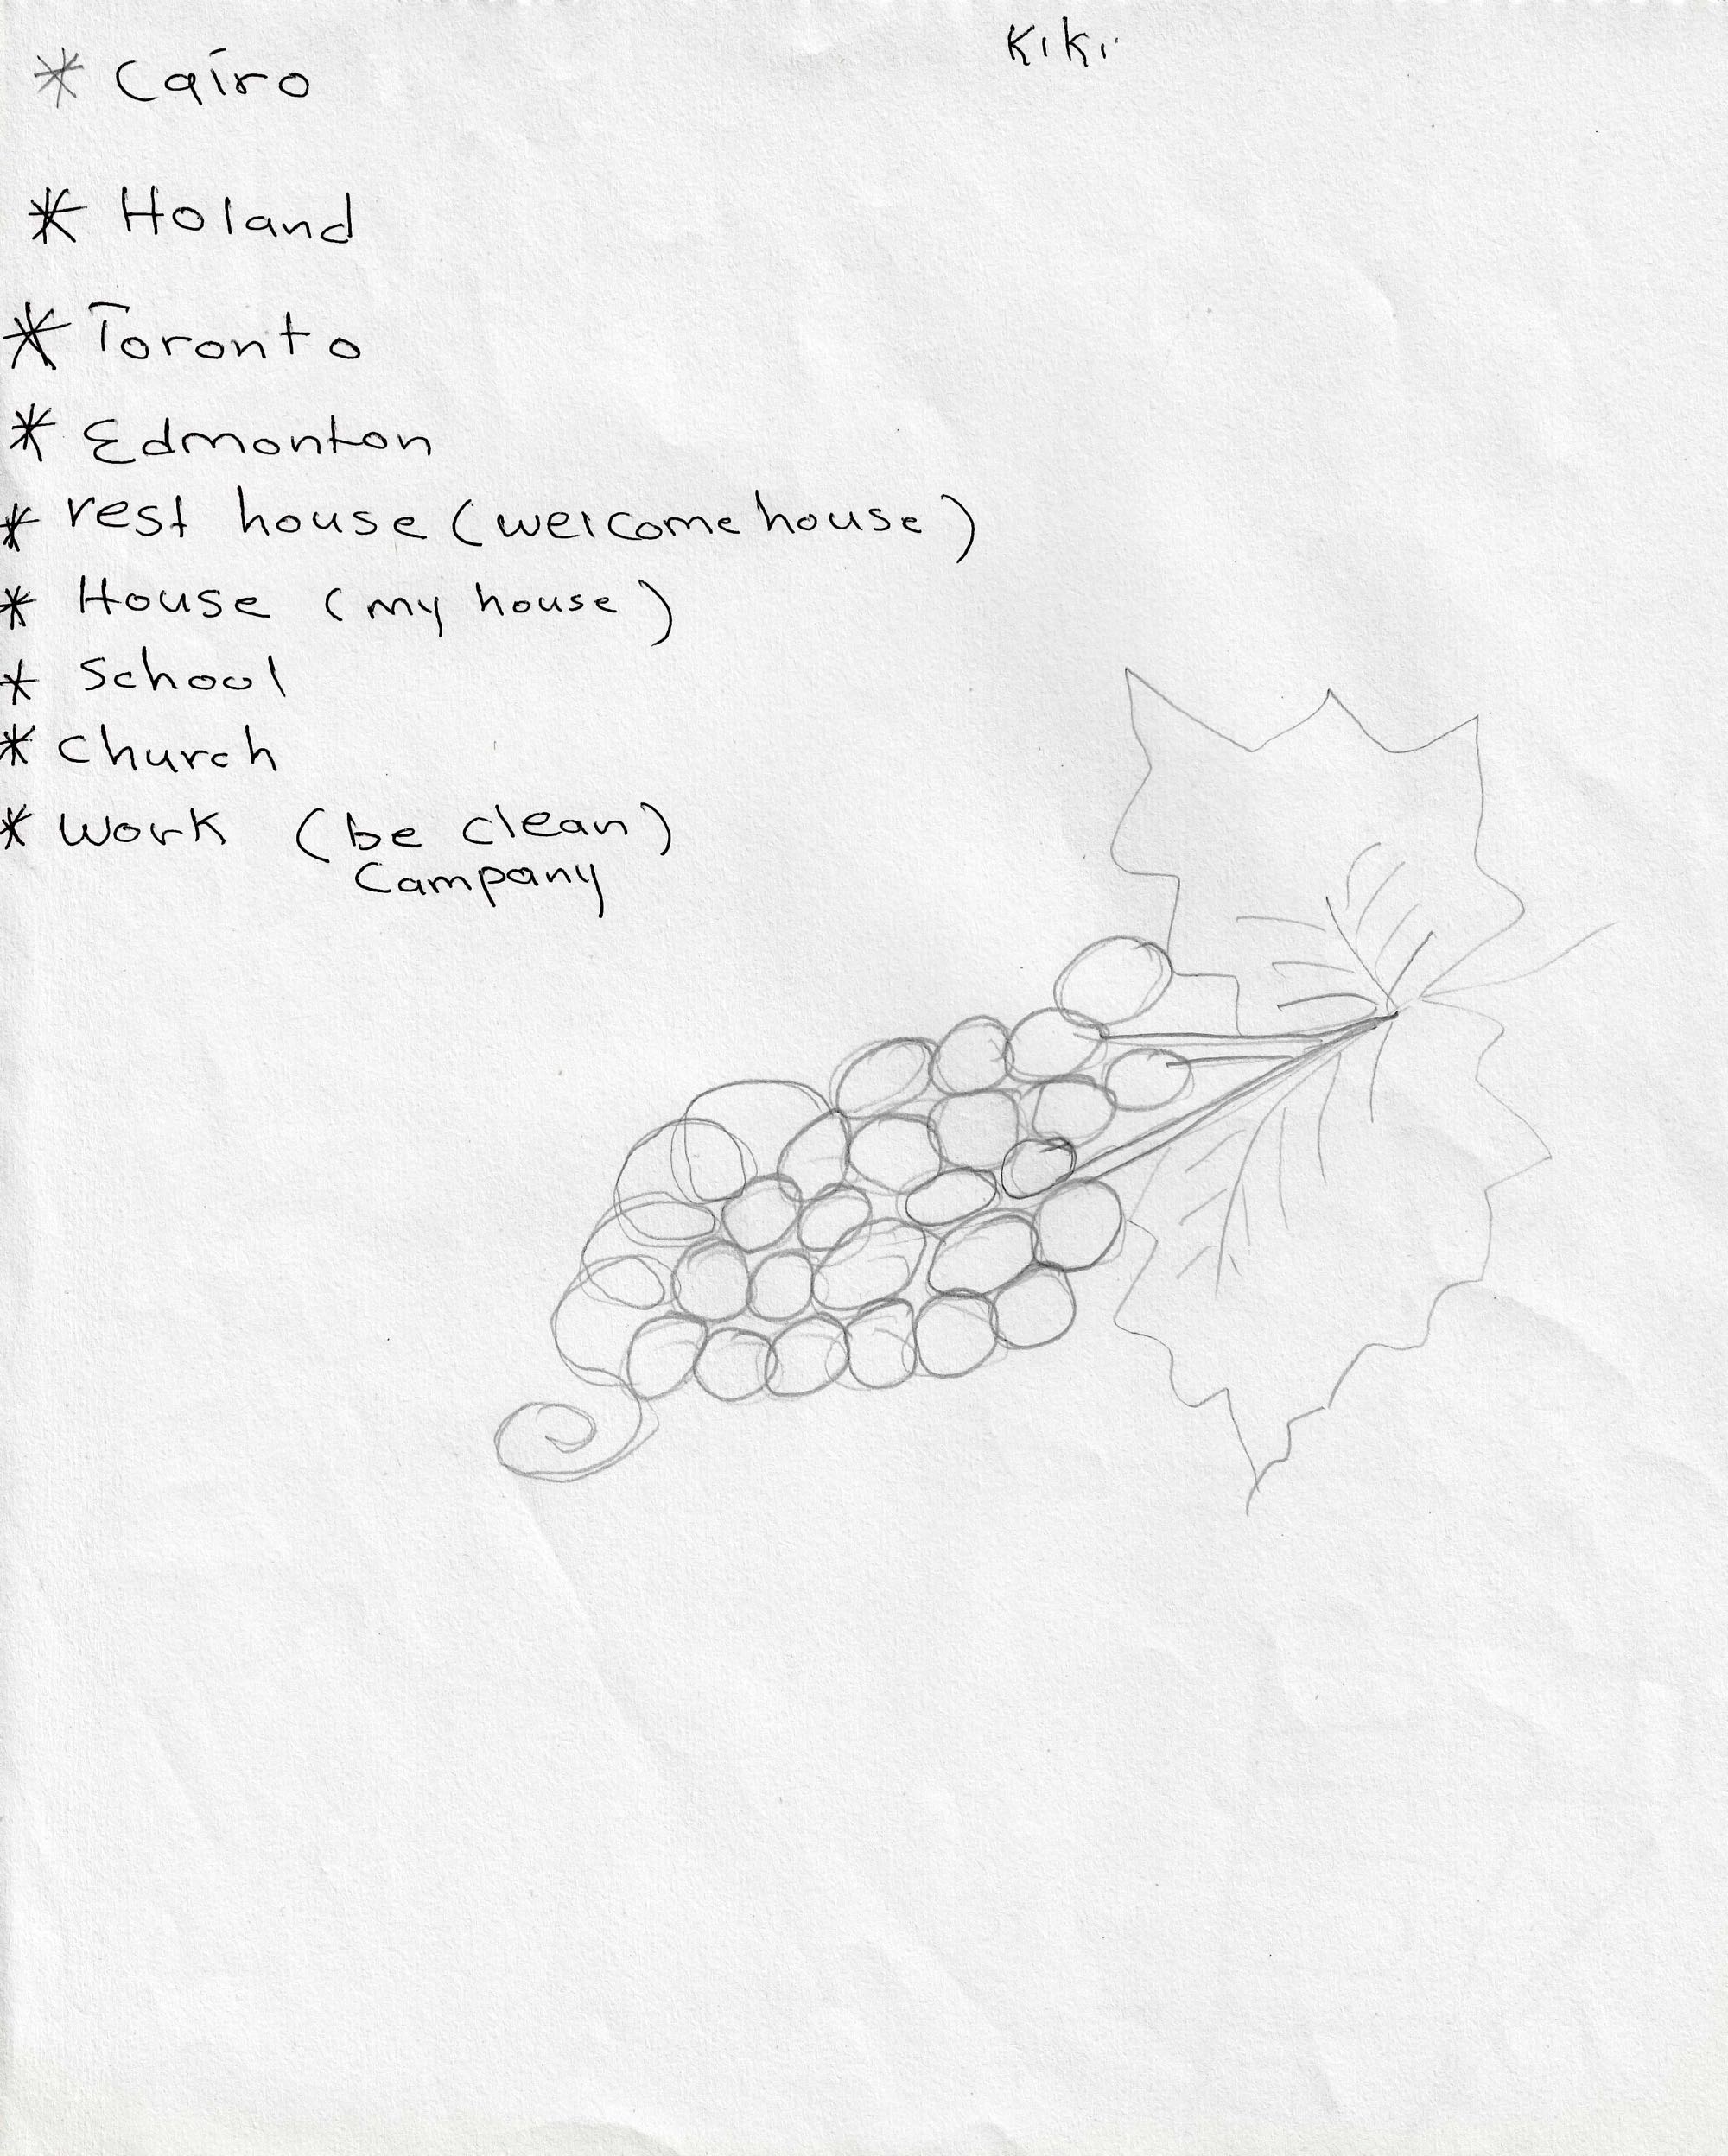 Kiki
* Cairo
* Holand
* Toronto
* Edmonton
* rest house (welcome house)
* House (my house)
* School
* Church
* Work (be clean)
Campany